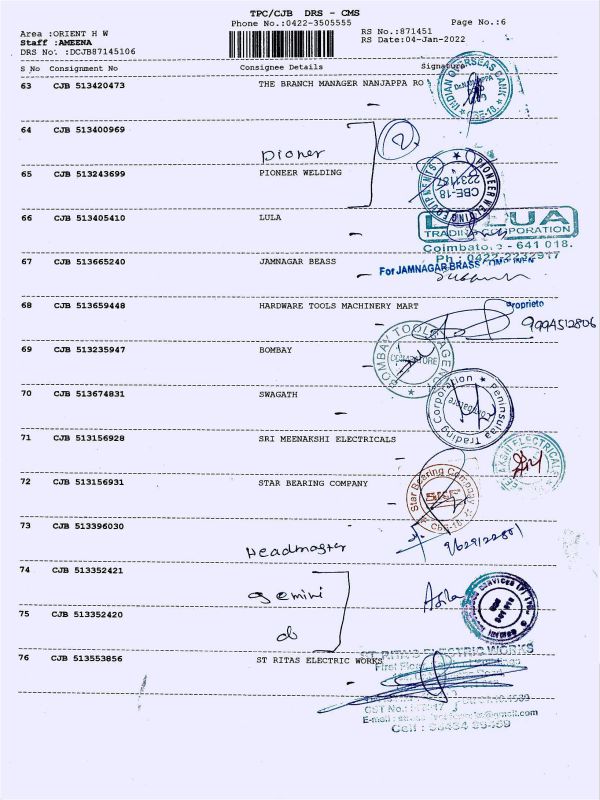 TPC/CJB DRS - CMS
Phone No.:0422-3505555
Page No.:6
Area :ORIENT H W
RS No.:871451
Staff :AMEENA
RS Date:04-Jan-2022
DRS No. :DCJB87145106
S No Consignment No Consignee Details Signature
63 CJB 513420473 THE BRANCH MANAGER NANJAPPA RO
INDIAN OVERSEAS BANK
CBE-18
64 CJB 513400969
Pioner
2
65 CJB 513243699 PIONEER WELDING
PIONEER WELDING EQUIPMENTS
CBE-18
66 CJB 513405410 LULA
TRADING CORPORATION
Coimbatore - 641 018.
Ph : 0422-2232917
67 CJB 513665240 JAMNAGAR BEASS
For JAMNAGAR BRASS
68 CJB 513659448 HARDWARE TOOLS MACHINERY MART
Proprieto
9994512806
69 CJB 513235947 BOMBAY
BOMBAY TOOLS AGENCY
COIMBATORE
70 CJB 513674831 SWAGATH
Peninsulaa Trading Corporation
Coimbatore
71 CJB 513156928 SRI MEENAKSHI ELECTRICALS
72 CJB 513156931 STAR BEARING COMPANY
Star Bearing Company
SKF
CBE-18
73 CJB 513396030
Headmaster
9629122801
74 CJB 513352421
gemini
75 CJB 513352420
do
76 CJB 513553856 ST RITAS ELECTRIC WORKS
ST RITA'S ELECTRIC WORKS
First Floor
CST No.:
E-mail :
Cell :